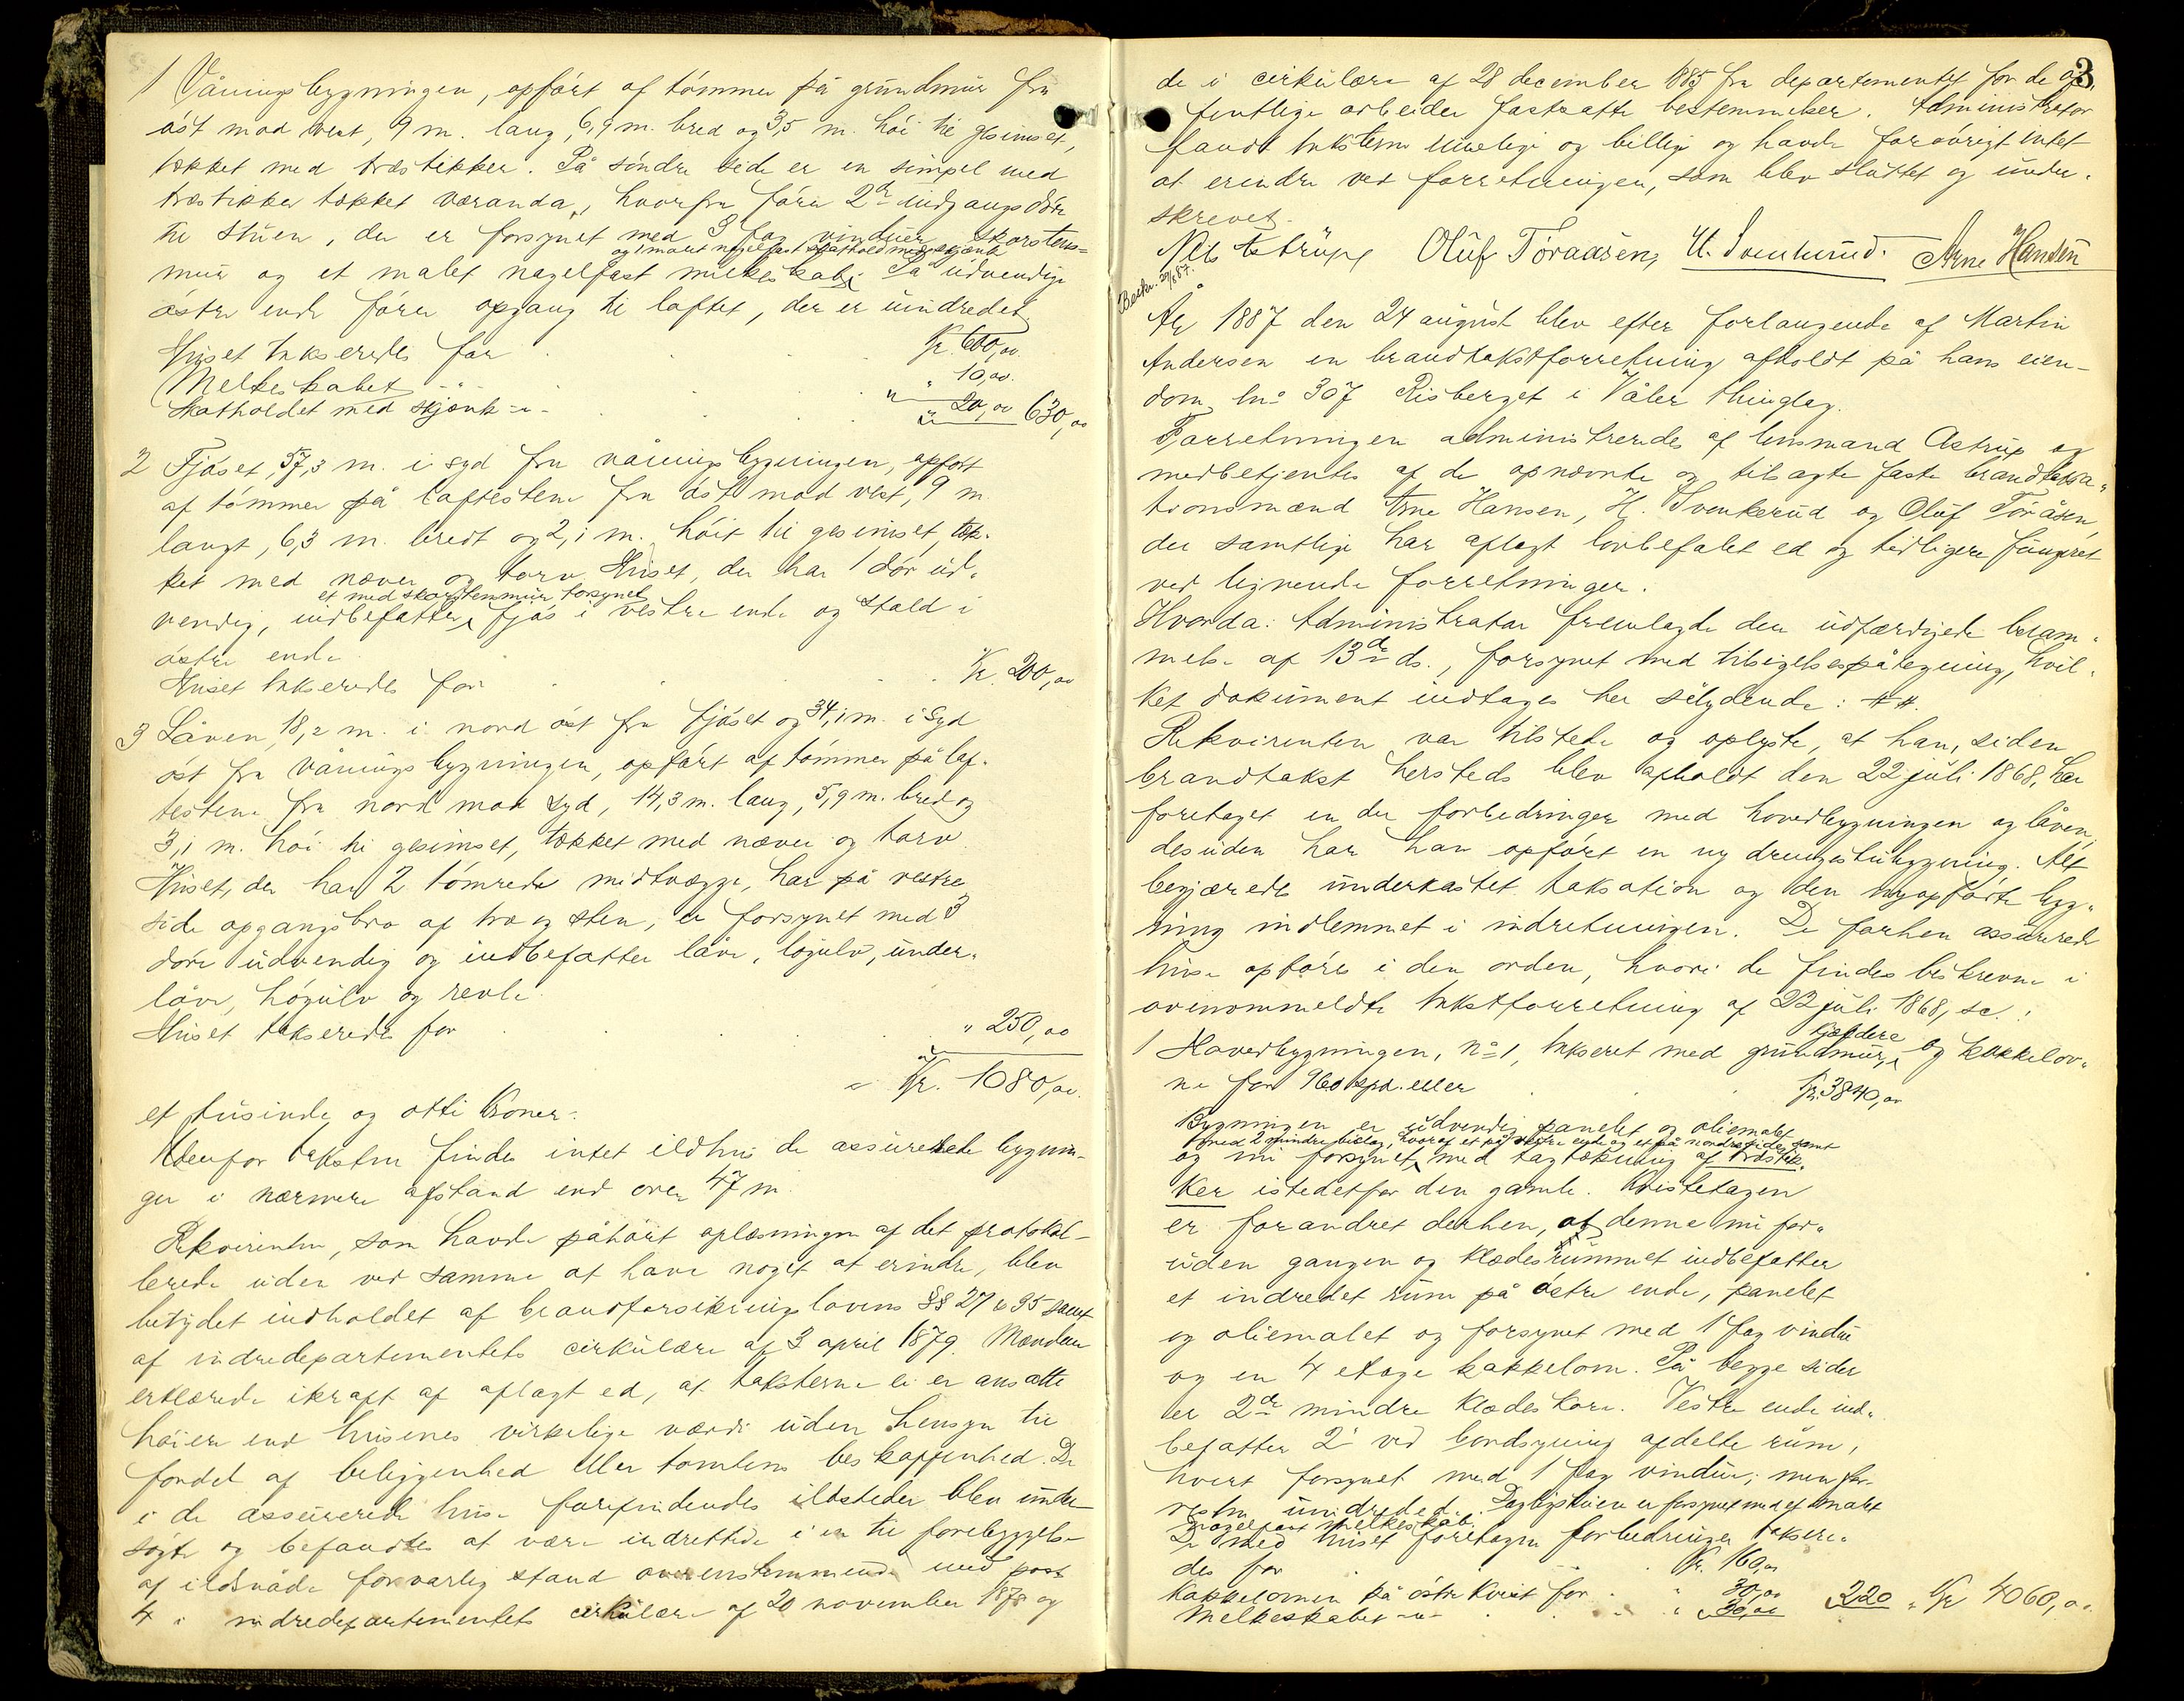 1 Våningsbygningen, opført af tømmer på grundmur fra
øst mod vest, 9 m. lang, 6,9 m. bred og 3,5 m. høi til gesimset,
tækket med træstikker. På søndre side er en simpel med
træstikker tækket væranda, hvorfra fører 2de indgangsdøre
til stuen, der er forsynet med 3 fag vinduer, skorstens-
og 1 malet nagelfast skathold med skjænk
mur og et malet nagelfast melkeskab. På udvendige
østre ende fører opgang til loftet, der er uindredet.
Huset takseredes for Kr. 600,00.
Melkeskabet -"- " 10,00.
Skatholdet med skjænk -"- " 20,00 630,00
2 Fjøset, 57,3 m. i syd fra våningsbygningen, opført
af tømmer på laftestene fra øst mod vest, 9 m.
langt, 6,3 m. bredt og 2,1 m. høit til gesimset, tæk-
ket med næver og torv. Huset, der har 1 dør ud-
et med skorstensmur forsynet
vendig, indbefatter fjøs i vestre ende og stald i
østre ende.
Huset takseredes for Kr. 200,00
3 Låven, 18,2 m. i nordøst fra fjøset og 34,1 m. i syd
øst fra våningsbygningen, opført af tømmer på laf-
testene fra nord mod syd, 14,3 m. lang, 5,9 m. bred og
3,1 m. høi til gesimset, tækket med næver og torv.
Huset, der har 2 tømrede midtvægge, har på vestre
side opgangsbro af træ og sten, er forsynet med 3
døre udvendig og indbefatter låve, logulv, under-
låve, høgulv og
Huset takseredes for " 250,00
Kr. 1080,00.
et tusinde og otti Kroner.
Udenfor taksten findes intet ildhus de assurerede bygnin-
ger i nærmere afstand end over 47 m.
Rekvirenten, som havde påhørt oplæsningen af det protokol-
lerede uden ved samme at have noget at erindre, blev
betydet indholdet af brandforsikringslovens §§ 27 & 35 samt
af indredepartementets cirkulære af 3 april 1879. Mændene
erklærede ikraft af aflagt ed, at taksterne ei er ansatte
høiere end husenes virkelige værdi uden hensyn til
fordel af beliggenhed eller tomtens beskaffenhed. De
i de assurerede huse forefindendes ildsteder blev under-
søgte og befandtes at være indrettede i en til forebyggelse
af ildsvåde forsvarlig stand overensstemmende med post
4 i indredepartementets cirkulære af 20 november 1878 og
3.
de i cirkulære af 28 december 1885 fra departementet for de of-
fentlige arbeider fastsatte bestemmelser. Administrator
fandt taksterne rimelige og billige og havde forøvrigt intet
at erindre ved forretningen, som blev sluttet og under-
skrevet.
Nils Astrup Oluf Toraasen, H. Svenkerud. Arne Hansen
Beskr. 29/8 87.
År 1887 den 24 august blev efter forlangende af Martin
Andersen en brandtakstforretning afholdt på hans eien-
dom, lno 307 Risberget i Våler thinglag.
Forretningen administreredes af lensmand Astrup og
medbetjentes af de opnævnte og tilsagte faste brandtaksa-
tionsmænd Arne Hansen, H. Svenkerud og Oluf Toråsen,
der samtlige har aflagt lovbefalet ed og tidligere fungeret
ved lignende forretninger.
Hvorda: Administrator fremlagde den udfærdigede beram-
melse af 13de ds., forsynet med tilsigelsespåtegning, hvil-
ket dokument indtages her sålydende: ##.
Rekvirenten var tilstede og oplyste, at han, siden
brandtakst hersteds blev afholdt den 22 juli 1868, har
foretaget en del forbedringer med hovedbygningen og låven,
desuden har han opført en ny drengestubygning. Alt
begjæredes underkastet taksation og den nyopførte byg-
ning indlemmet i indretningen. De forhen assurerede
huse opføres i den orden, hvori de findes beskrevne i
ovenommeldte takstforretning af 22 juli 1868, sc.:
kjældere
1 Hovedbygningen, no 1, takseret med grundmur, og kakkelov-
ne for 960 spd. eller Kr. 3840,00
Bygningen er udvendig panelet og oliemalet
med 2 mindre bislag, hvoraf et på østre ende og et på nordre side, samt
og nu forsynet med tagtækning af træstik-
ker istedetfor den gamle. Kvistetagen
er forandret derhen, at denne nu for-
uden gangen og klædesrummet indbefatter
et indredet rum på østre ende, panelet
og oliemalet og forsynet med 1 fag vindu
og en 4 etage kakkelovn. På begge sider
er 2de mindre klædeskove. Vestre ende ind-
befatter 2 ved bordsyning afdelte rum,
hvert forsynet med 1 fag vindu, men for-
resten uindredede. Dagligstuen er forsynet med et malet
nagelfast melkeskab.
De med huset foretagne forbedringer taksere-
des for Kr. 160,00
kakkelovnen på østre kvist for " 30,00
Melkeskabet -"- " 30,00 220 " Kr 4060,00